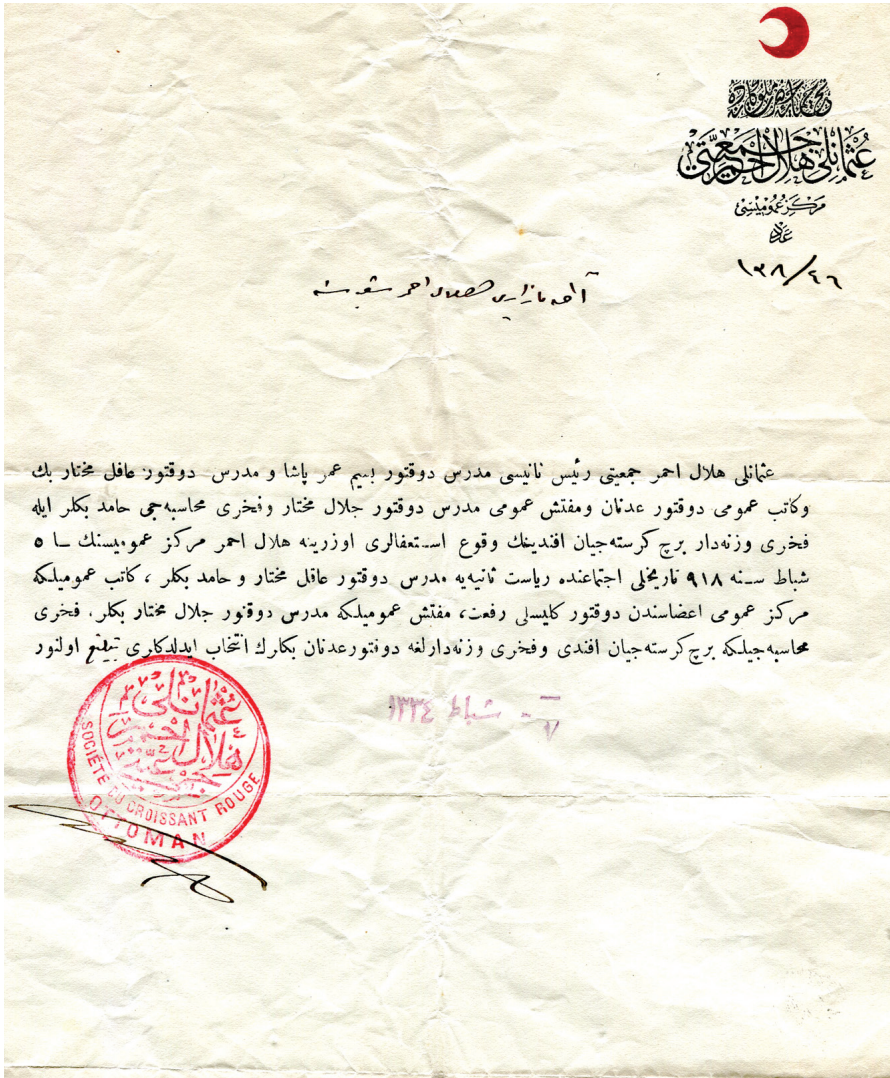 عثمانلى هلال احمر جمعيتى
مركز عموميسى
عدد
١٣٨/٤٦
هلال احمر شعبه سنه
عثمانلى هلال احمر جمعيتى رئيس ثانيسى مدرس دوقتور بسيم عمر پاشا و مدرس دوقتور عاقل مختار بك
وكاتب عمومى دوقتور عدنان ومفتش عمومى مدرس دوقتور جلال مختار وفخرى محاسبه جى حامد بكلر ايله
فخرى وزنه دار برچ كرسته جيان افندينك وقوع استعفالرى اوزرينه هلال احمر مركز عموميسنك ٥
شباط سنه ٩١٨ تاريخلى اجتماعنده رياست ثانيه يه مدرس دوقتور عاقل مختار و حامد بكلر ، كاتب عموميلكه
مركز عمومى اعضاسندن دوقتور كليسلى رفعت، مفتش عموميلكه مدرس دوقتور جلال مختار بكلر، فخرى
محاسبه جيلكه برچ كرسته جيان افندى وفخرى وزنه دارلغه دوقتور عدنان بكلرك انتخاب ايدلدكلرى تبليغ اولنور
٧ شباط ١٣٣٤
عثمانلى
هلال احمر
جمعيتى
SOCIÉTÉ DU CROISSANT ROUGE
OTTOMAN